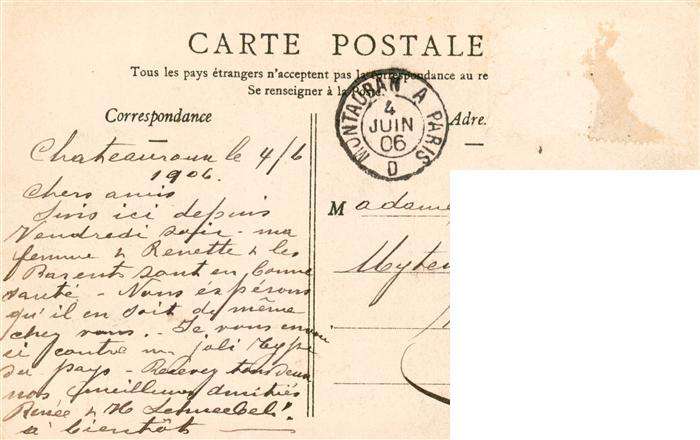 CARTE POSTALE
Tous les pays étrangers n'acceptent pas la correspondance au re
Se renseigner à la Poste.
Correspondance
Adre.
MONTAUBAN A PARIS
4
JUIN
06
D
Chateauroux le 4/6
1906.
Chers amis
Suis ici depuis
Vendredi soir - ma
femme & Renette & les
Parents sont en bonne
santé - Nous espérons
qu'il en soit de même
chez vous. - Je vous envoie
ci contre un joli type
du pays - Recevez tous deux
nos meilleures amitiés
Renée & H
à bientôt
Madame